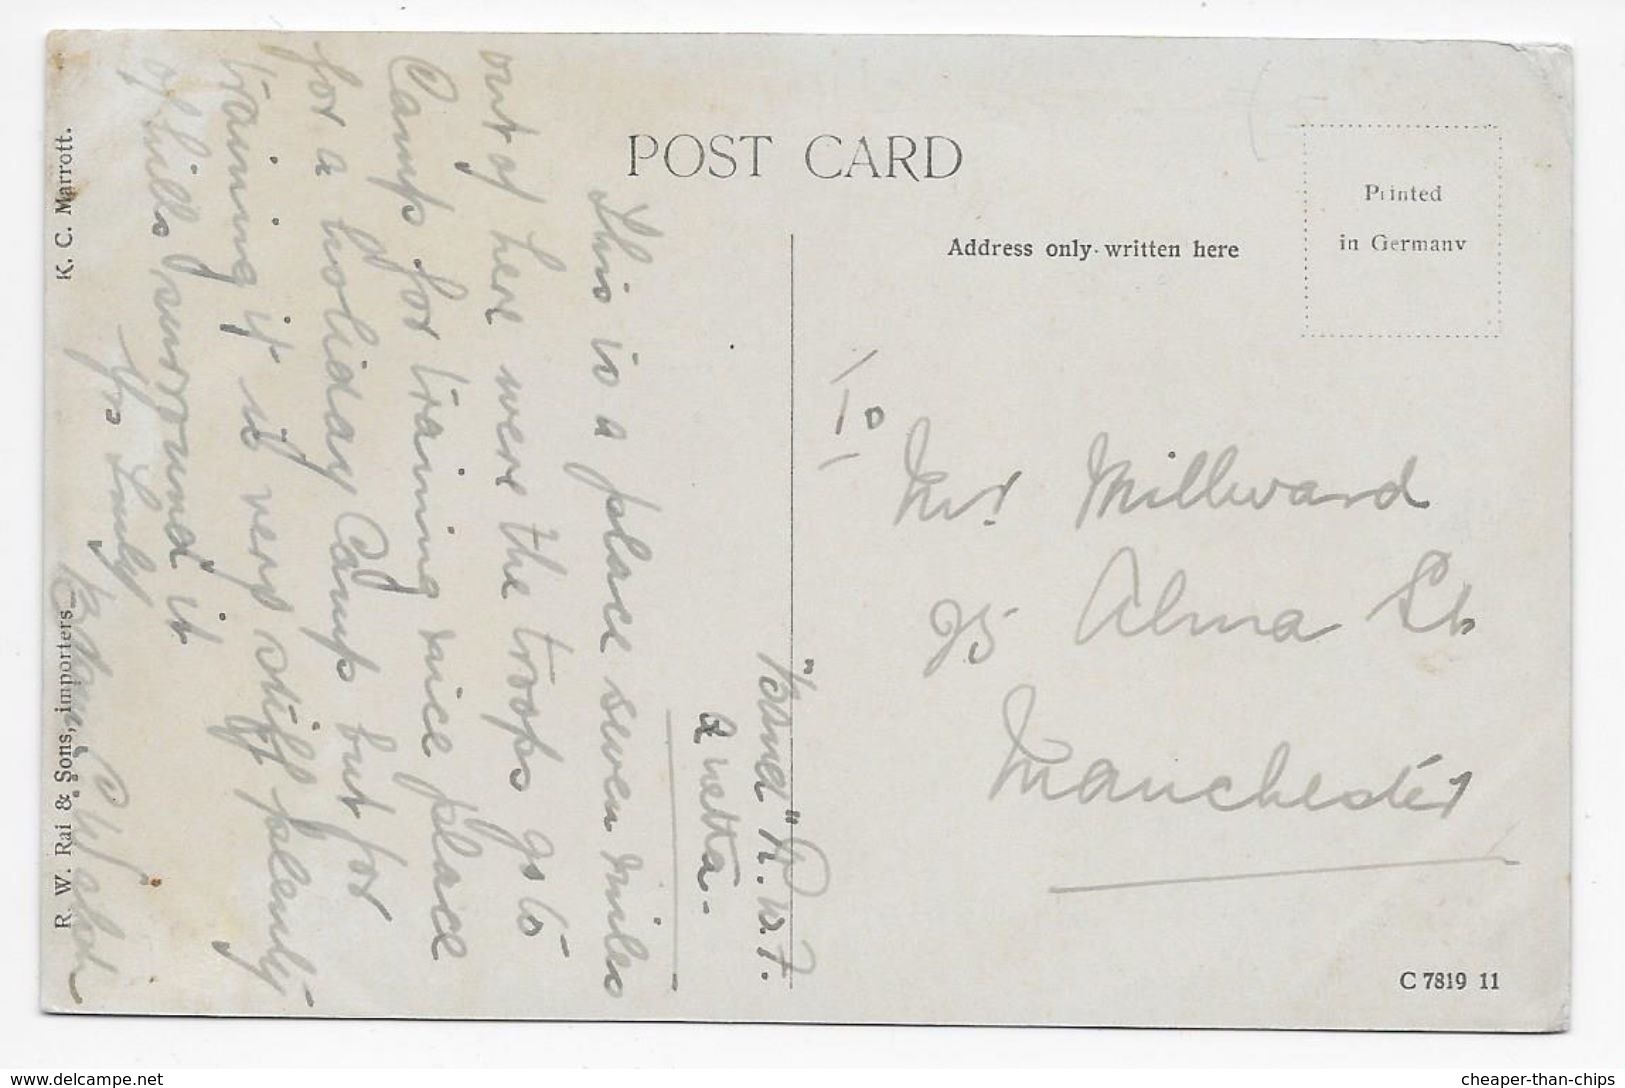 POST CARD
Address only written here
Printed
in Germany
"Bsnd" R.W.F.
Quetta.
This is a place seven miles
out of here were the troops go to
Camp for training nice place
for a holiday Camp but for
training it is very stiff plenty
of hills surround it
Yrs Truly
Walsh
To
Mr Millward
75 Alma St
Manchester
K. C. Marrott.
R. W. Rai & Sons, importers
C 7819 11
cheaper-than-chips
www.delcampe.net